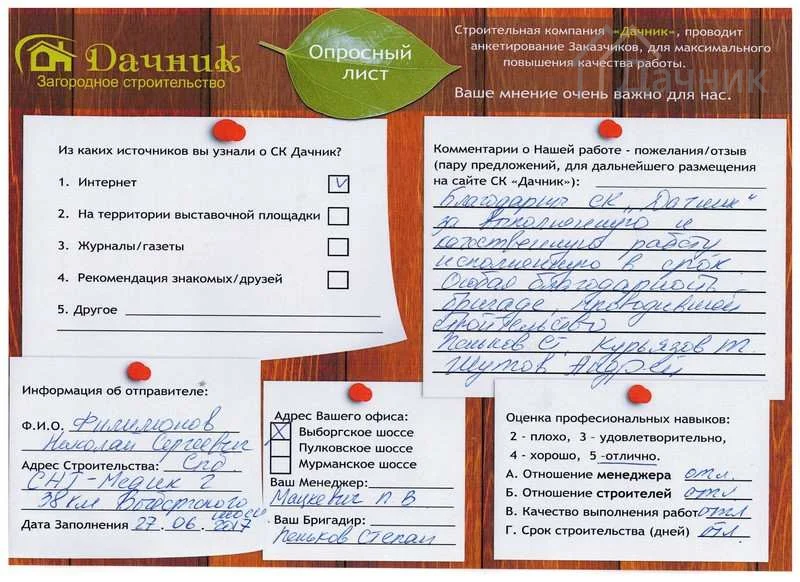 Дачник
Загородное строительство
Опросный
лист
Строительная компания «Дачник», проводит
анкетирование Заказчиков, для максимального
повышения качества работы.
Ваше мнение очень важно для нас.
Дачник
Из каких источников вы узнали о СК Дачник?
1. Интернет V
2. На территории выставочной площадки
3. Журналы/газеты
4. Рекомендация знакомых/друзей
5. Другое
Комментарии о Нашей работе - пожелания/отзыв
(пару предложений, для дальнейшего размещения
на сайте СК «Дачник»):
Благодарим СК „Дачник“
за выполненную и
качественную работу
исполненную в срок.
Особая благодарность
бригаде, проводившей
строительство
Пеньков С. Курьязов Т.
Шутов Андрей
Информация об отправителе:
Ф.И.О. Филимонов
Николай Сергеевич
Адрес Строительства: СПб
СНТ-Медик 2
38 км Выборгского
шоссе
Дата Заполнения 27.06.2017
Адрес Вашего офиса:
X Выборгское шоссе
Пулковское шоссе
Мурманское шоссе
Ваш Менеджер:
Мацкевич П.В
Ваш Бригадир:
Пеньков Степан
Оценка професиональных навыков:
2 - плохо, 3 - удовлетворительно,
4 - хорошо, 5 -отлично.
А. Отношение менеджера отл.
Б. Отношение строителей отл
В. Качество выполнения работ отл
Г. Срок строительства (дней) отл.